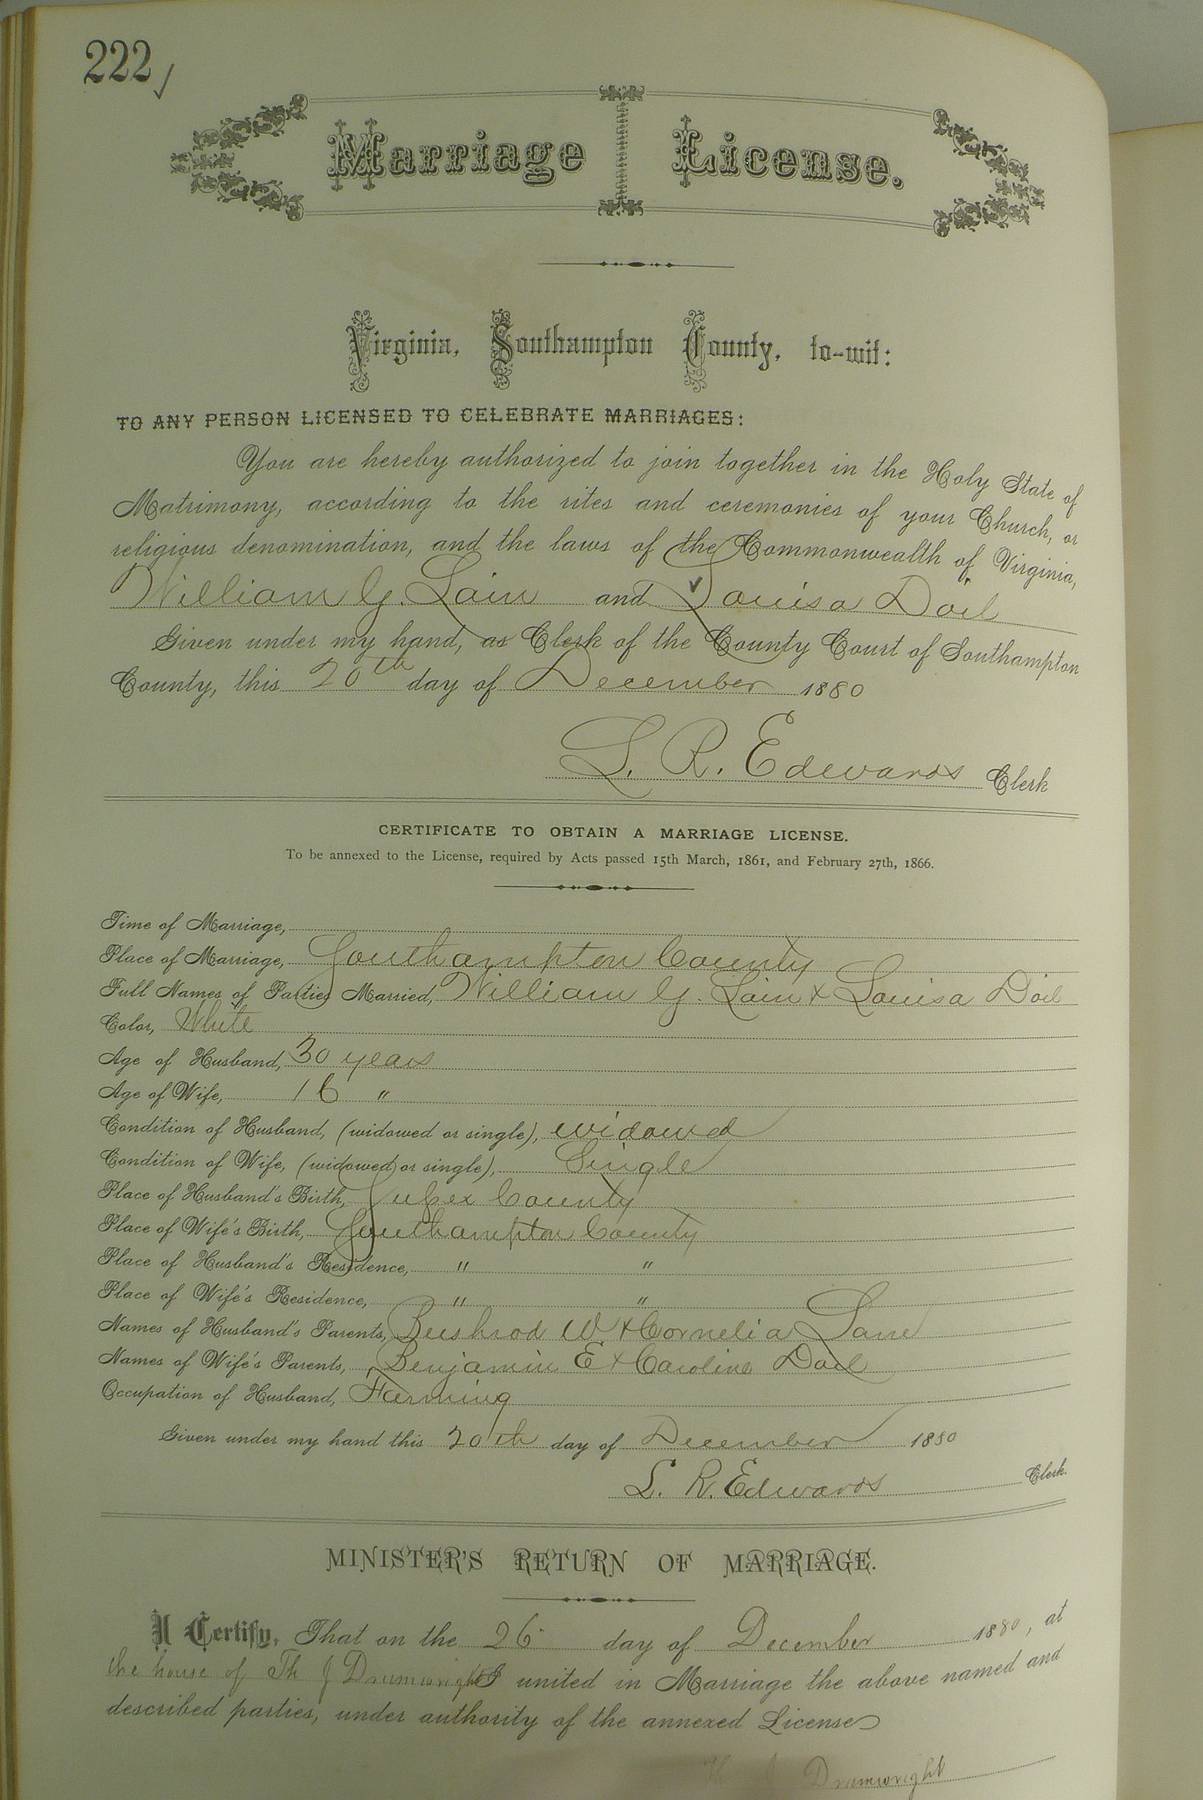 222 ✓
Marriage License.
Virginia, Southampton County, to-wit:
TO ANY PERSON LICENSED TO CELEBRATE MARRIAGES:
You are hereby authorized to join together in the Holy State of
Matrimony, according to the rites and ceremonies of your Church, or
religious denomination, and the laws of the Commonwealth of Virginia,
William G. Lain and Louisa Doil
Given under my hand, as Clerk of the County Court of Southampton
County, this 20th day of December 1880
L. R. Edwards Clerk
CERTIFICATE TO OBTAIN A MARRIAGE LICENSE.
To be annexed to the License, required by Acts passed 15th March, 1861, and February 27th, 1866.
Time of Marriage,
Place of Marriage, Southampton County
Full Names of Parties Married, William G. Lain & Louisa Doil
Color, White
Age of Husband, 30 years
Age of Wife, 16 "
Condition of Husband, (widowed or single), widowed
Condition of Wife, (widowed or single), Single
Place of Husband's Birth, Sussex County
Place of Wife's Birth, Southampton County
Place of Husband's Residence, " "
Place of Wife's Residence, " "
Names of Husband's Parents, Bushrod W & Cornelia Lane
Names of Wife's Parents, Benjamin E & Caroline Doil
Occupation of Husband, Farming
Given under my hand this 20th day of December 1880
L. R. Edwards Clerk.
MINISTER'S RETURN OF MARRIAGE.
I Certify, That on the 26 day of December 1880, at
the house of Th J Drumwright I united in Marriage the above named and
described parties, under authority of the annexed License
J Drumwright